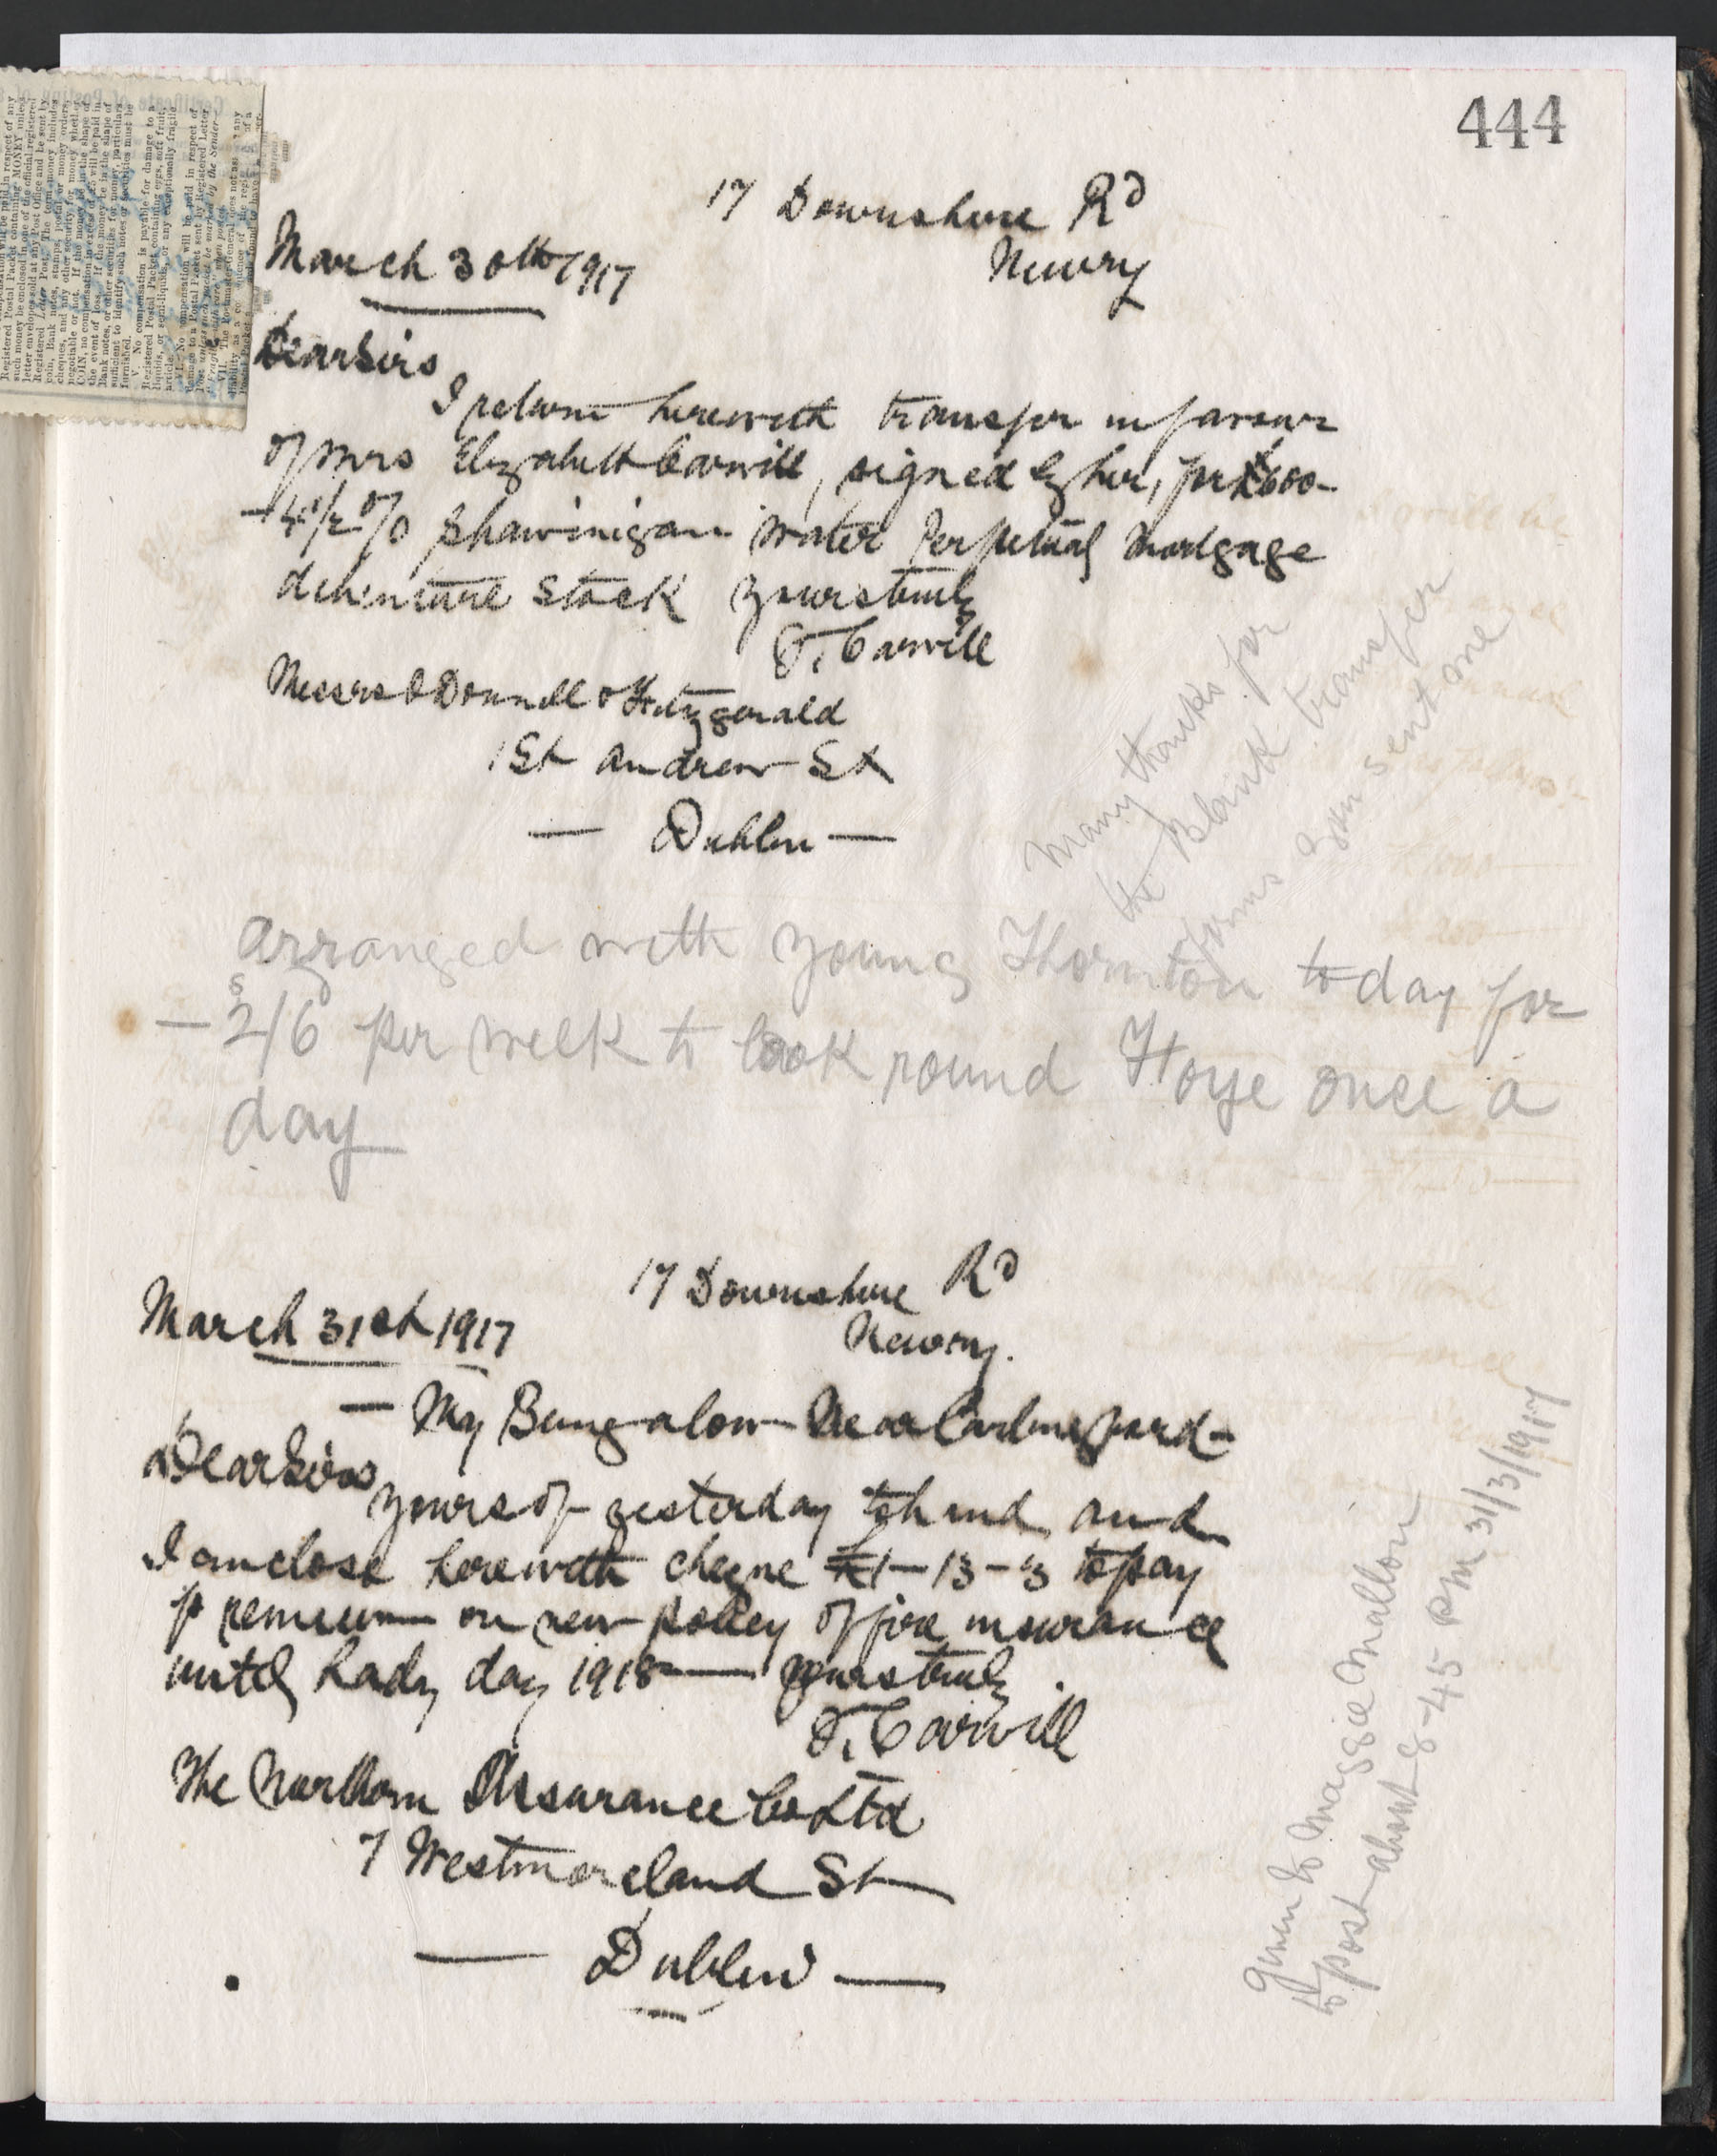 444
17 Downshire Rd
Newry
March 30th 1917
Dear Sirs
I return herewith transfer in favour
of Mrs Elizabeth Carvill, signed by her, for £600-
-4½% Shawinigan Water Perpetual Mortgage
debenture Stock yours truly
F. Carvill
Messrs O Donnell & Fitzgerald
1 St Andrew St
— Dublin —
Many thanks for
the Blank transfer
forms you sent me
arranged with young Thornton to day for
— 2s/6 per week to look round Horse once a
day
17 Downshire Rd
Newry.
March 31st 1917
— My Bungalow Near Carlingford -
Dear Sirs
yours of yesterday to hand and
I enclose herewith cheque £1-13-3 to pay
premium on new policy of fire insurance
until Lady day 1918 — yours truly
F. Carvill
The Northern Assurance Co Ltd
7 Westmoreland St
— Dublin —
given to Maggie Mallon
to post about 8-45 PM 31/3/1917
V. No compensation is payable for damage to a
Registered Postal Packet containing eggs, soft fruit,
liquids, or semi-liquids, or any exceptionally fragile
article.